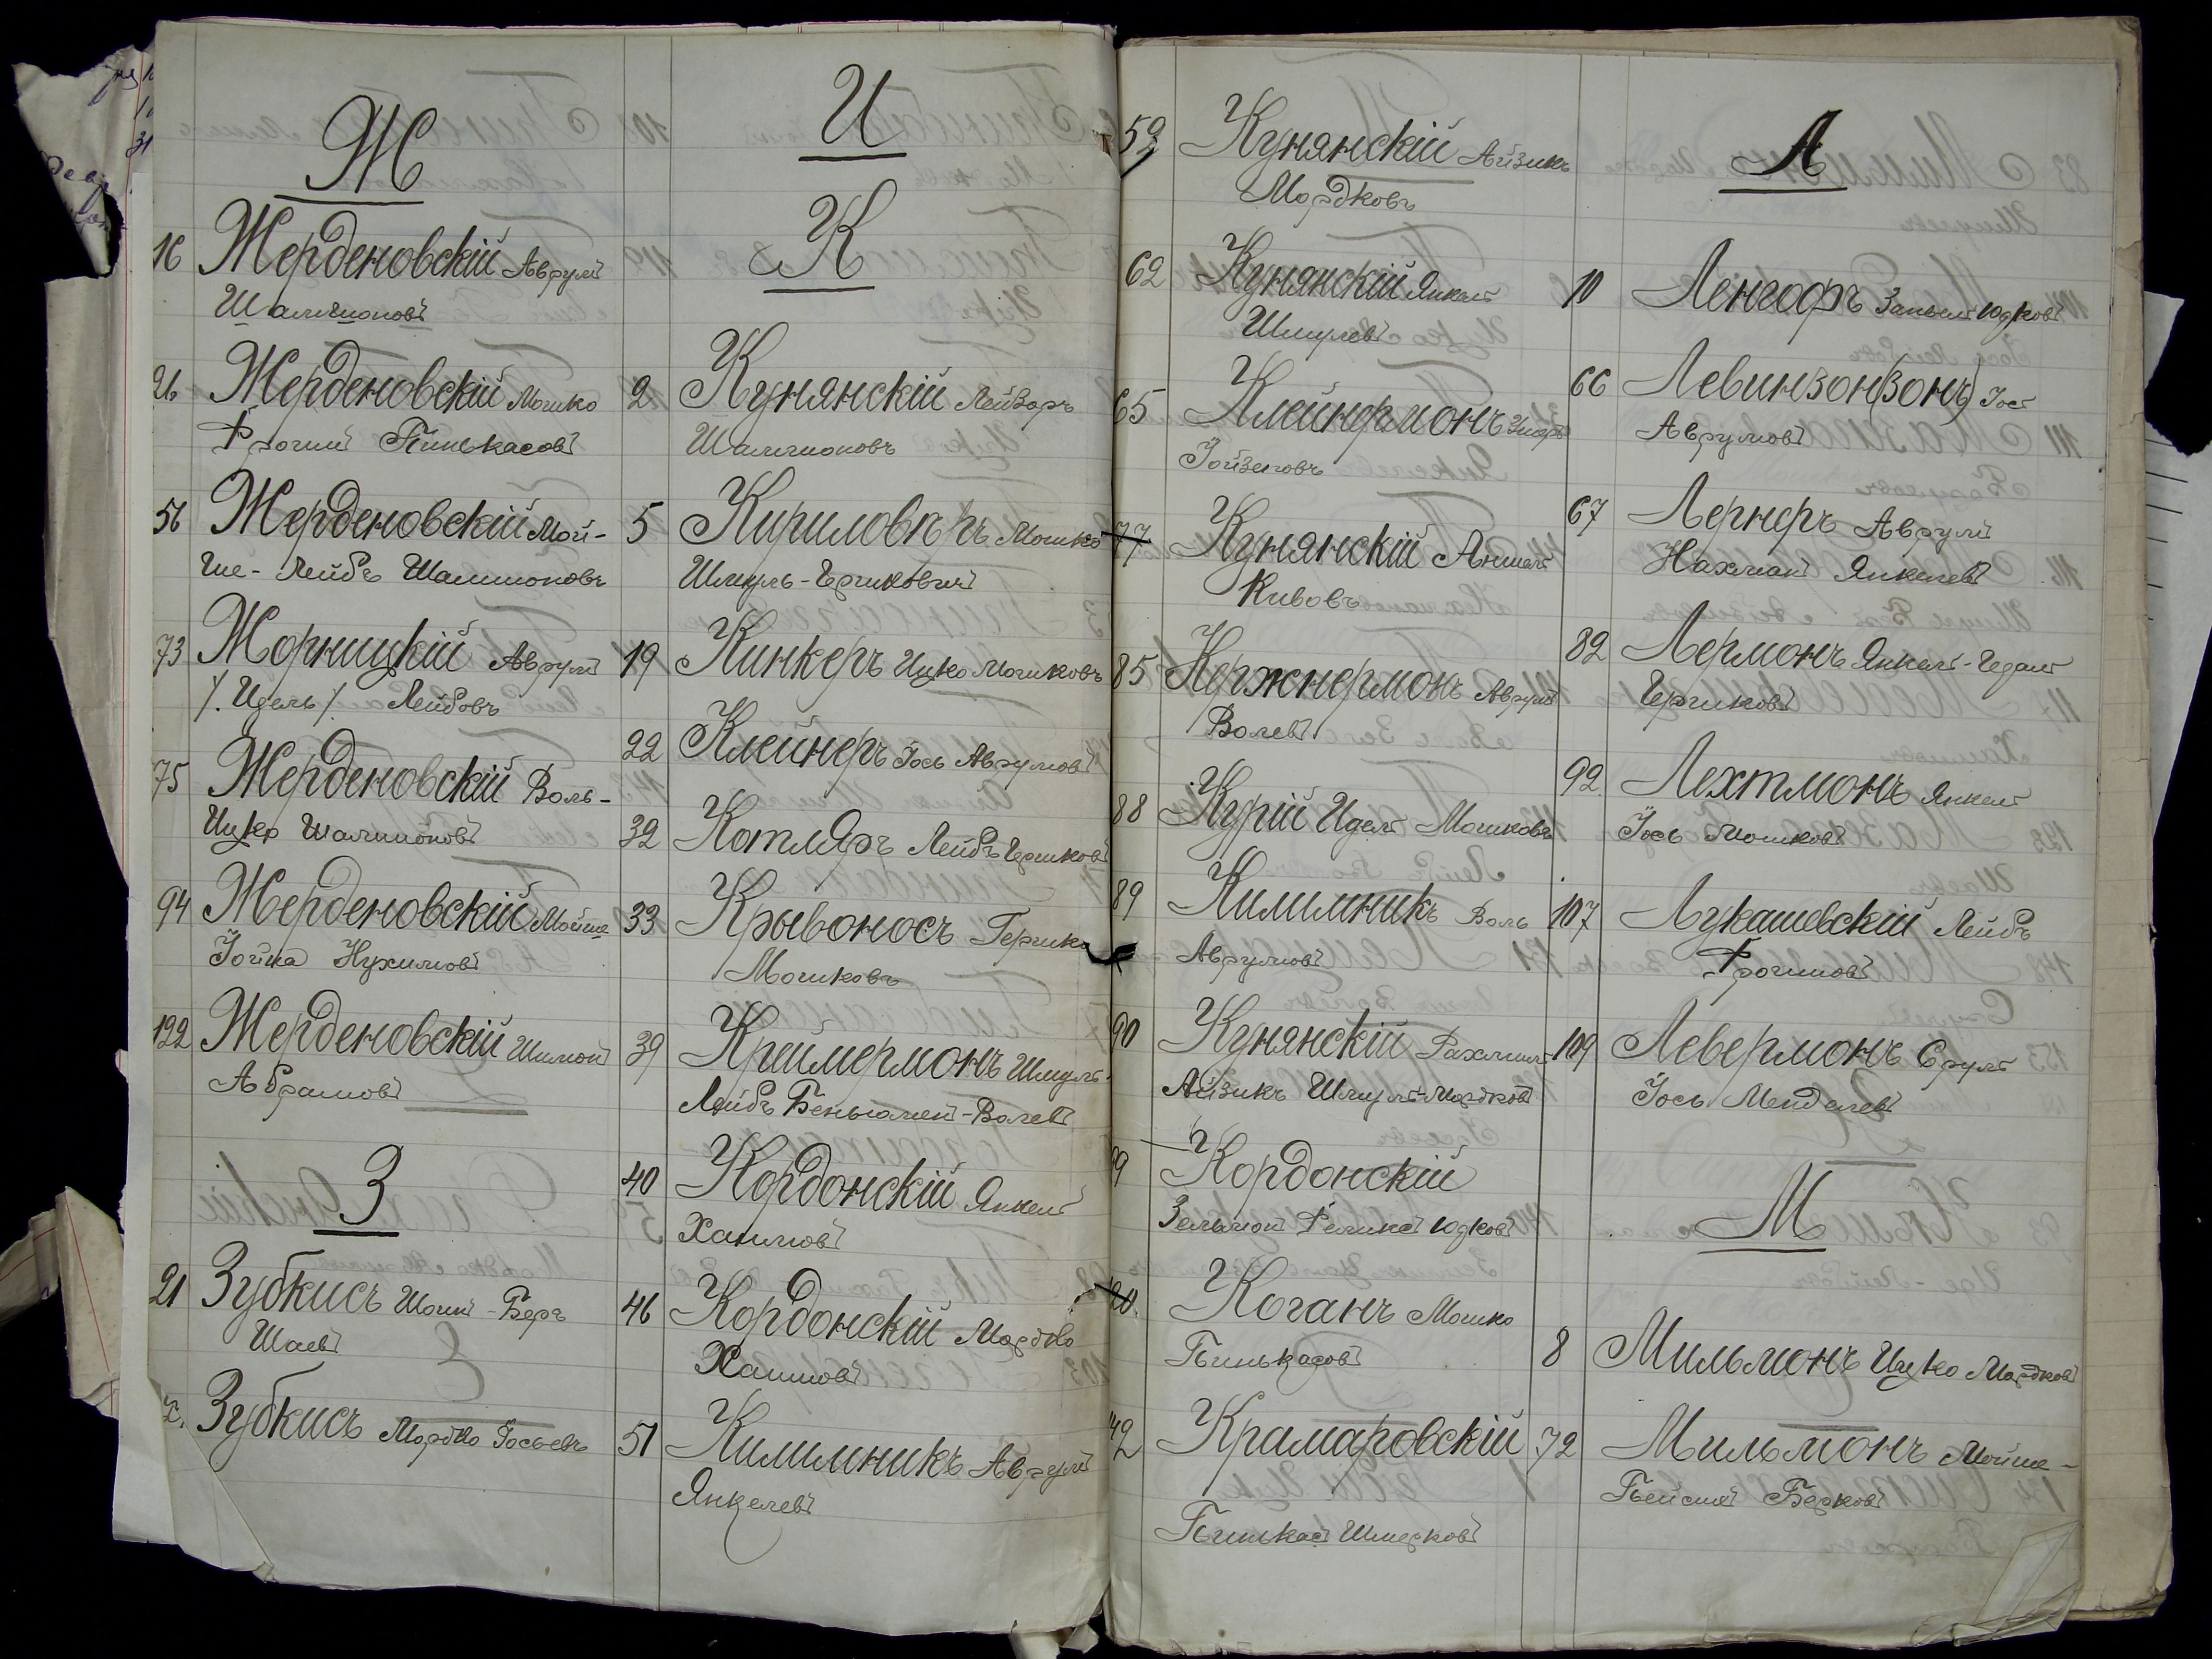 Ж
16 Жерденовскій Аврумъ
Шалимоновъ
26 Жерденовскій Мошко
Фроимъ Пинькасовъ
56 Жерденовскій Мой-
ше-Лейбъ Шалимоновъ
73 Жорницкій Аврумъ
/.Идель/. Лейбовъ
75 Жерденовскій Воль-
Ицко Шалимоновъ
94 Жерденовскій Мойше
Іойна Нухимовъ
122 Жерденовскій Шимонъ
Абрамовъ
З
21 Зубкисъ Шоим-Беръ
Шаевъ
Зубкисъ Мордко Іосьевъ
И
К
2 Кунянскій Лейзоръ
Шалимоновъ
5 Кириловкеръ Мошко
Шмуль-Гершковъ
19 Кинкеръ Ицко Мошковъ
22 Клейнеръ Іось Аврумовъ
32 Котляръ Лейбъ Гершковъ
33 Крывоносъ Гершко
Мошковъ
39 Креймермонъ Шмуль-
Лейбъ Беньюмен-Волевъ
40 Кордонскій Янкель
Хаимовъ
46 Кордонскій Мордко
Хаимовъ
51 Килимникъ Аврумъ
Янкелевъ
59 Кунянскій Айзикъ
Мордковъ
62 Кунянскій Янкель
Шмулевъ
65 Клейнермонъ
Іойзеповъ
77 Кунянскій Аншель
Кивовъ
85 Кержнермонъ Аврумъ
Волевъ
88 Курій Идель Мошковъ
89 Килимникъ Воль
Аврумовъ
90 Кунянскій Рахмиль
Айзикъ Шмуль-Мордковъ
99 Кордонскій
Зельман Феликс Юдковъ
120. Коганъ Мошко
Пинькасовъ
142 Крамаровскій
Пинкас Шмерковъ
Л
10 Ленгофъ Заньвель Юдковъ
66 Левинзон(зонъ) Іось
Аврумовъ
67 Лернеръ Аврумъ
Нахман Янкелевъ
82 Лермонъ Янкель-Гедаль
Гершковъ
92 Лехтмонъ Янкель
Іось Мошковъ
107 Лукашевскій Лейбъ
Фроимовъ
109 Левермонъ Сруль
Іось Менделевъ
М
8 Мильмонъ Ицко Мордковъ
72 Мильмонъ Мойше-
Пейсах Берковъ